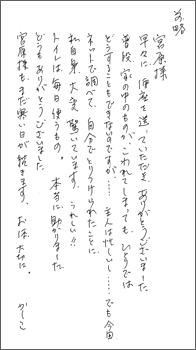 前略
宮原様
早々に、便座を送っていただき、ありがとうございました。
普段、家の中のものが、こわれてしまっても、ひとりでは
どうすることもできないのですが…、主人は忙しいし…でも今回
ネットで調べて、自分でとりつけられたことに
私自身、大変、驚いています。うれしい!!
トイレは、毎日使うもの。本当に助かりました。
どうもありがとうございました。
宮原様も、まだ寒い日が続きます。お体、大切に。
かしこ